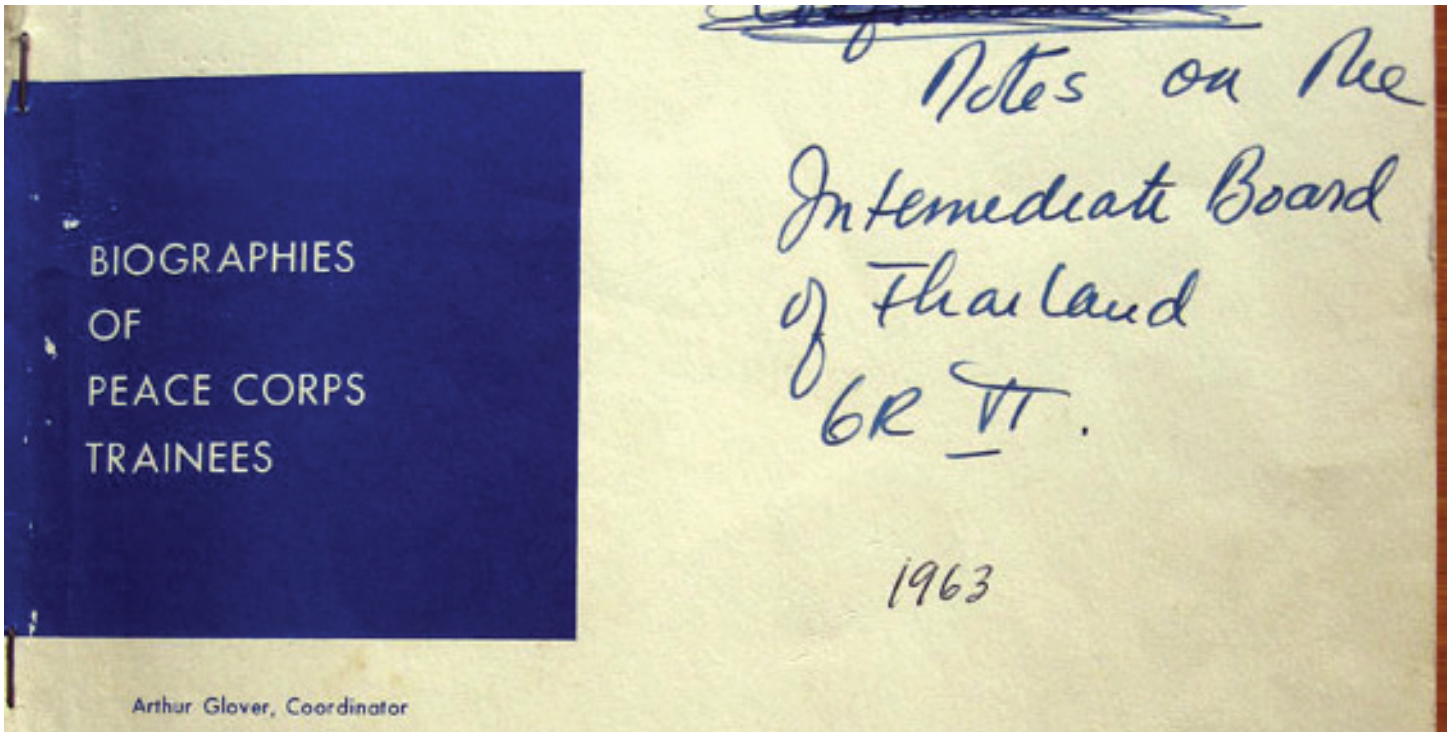 BIOGRAPHIES
OF
PEACE CORPS
TRAINEES
Arthur Glover, Coordinator
Notes on the
Intermediate Board
of Thailand
GR VI.
1963